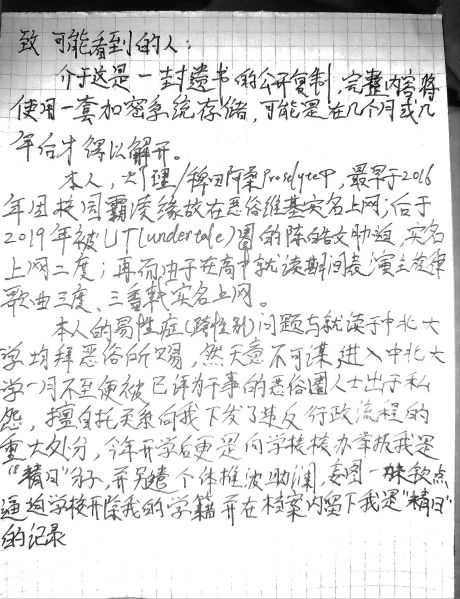 致 可能看到的人：
介于这是一封遗书的公开复制，完整内容将
使用一套加密系统存储，可能是在几个月或几
年后才得以解开。
本人，/稗田阿桑proselyte，最早于2016
年因校园霸凌缘故在恶俗维基实名上网；后于
2019年被UT(undertale)圈的陈皓文助迫，实名
上网二度；再而由于在高中就读期间表演主旋律
歌曲三度，三番斩实名上网。
本人的易性症(跨性别)问题与就读于中北大
学均拜恶俗所赐，然天意不可谋，进入中北大
学一月不至便被已评为干事的恶俗圈人士出于私
怨，擅自托关系向我下发了违反行政流程的
重大处分，今年开学后更是向学校校办举报我是
“精日”分子，并另遣个体推波助澜，妄图
逼迫学校开除我的学籍并在档案内留下我是“精日”
的记录